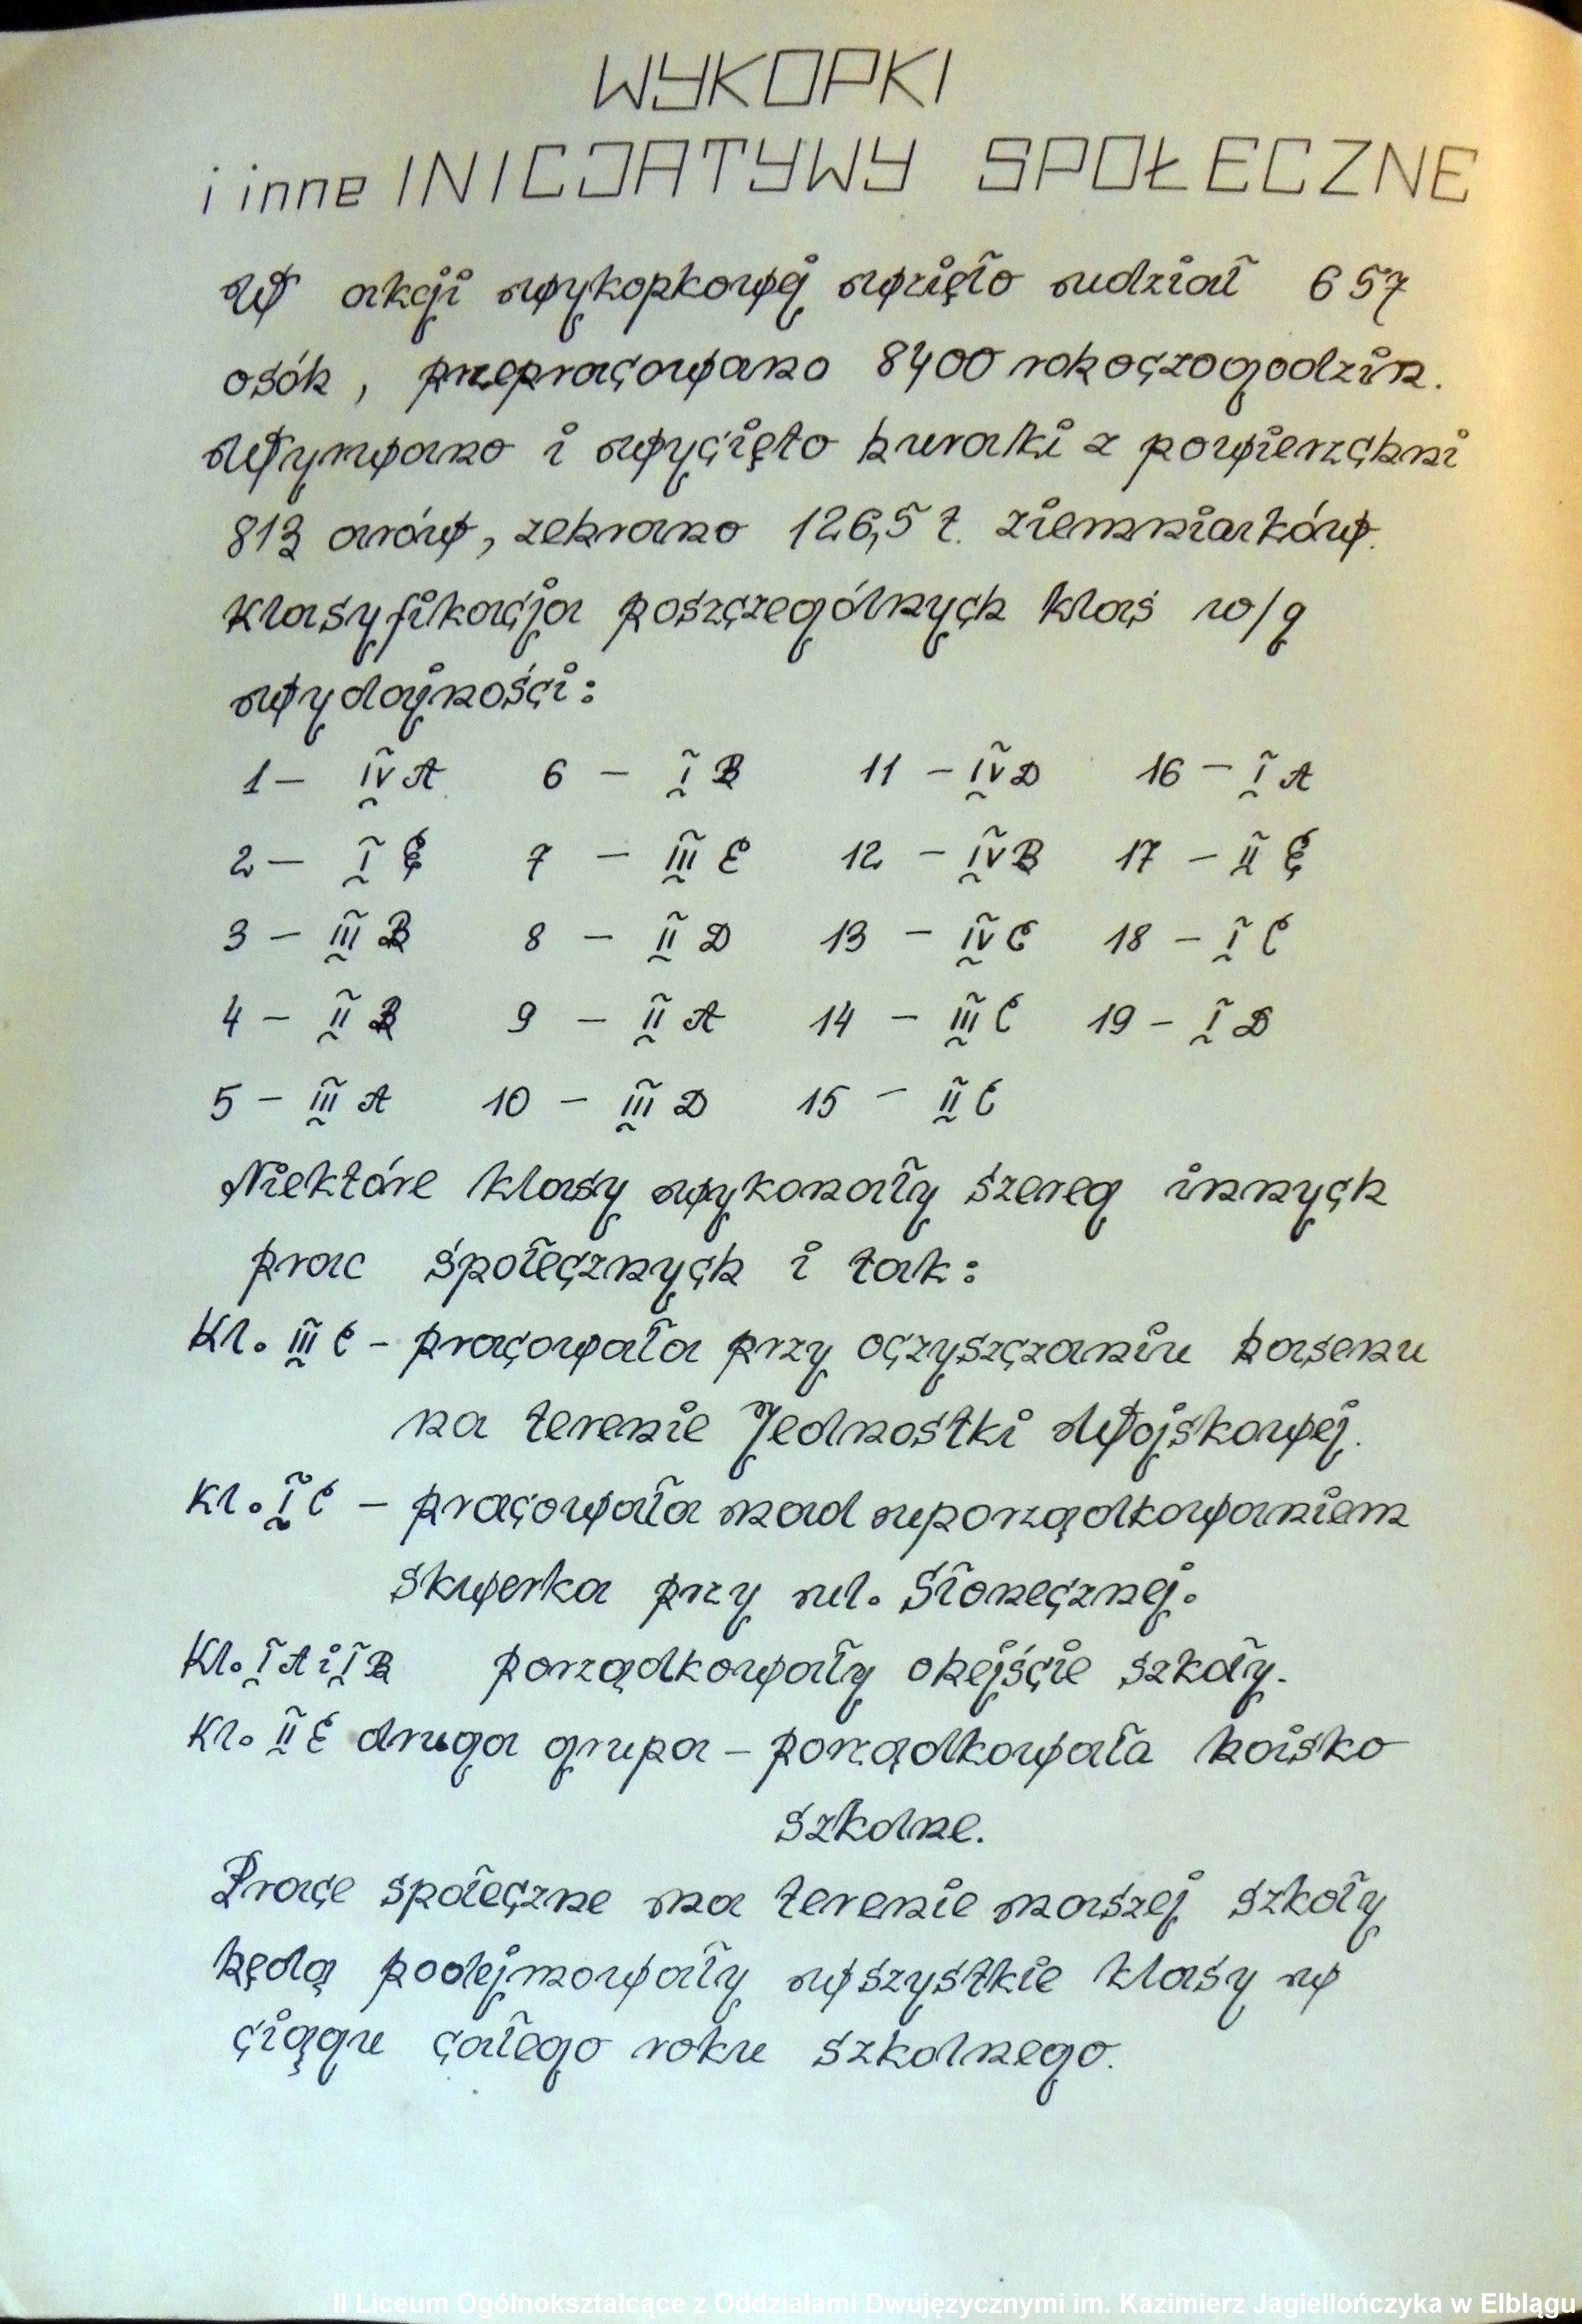 WYKOPKI
i inne INICJATYWY SPOŁECZNE
W akcji wykopkowej wzięło udział 657
osób, przepracowano 8400 roboczogodzin.
Wyrwano i wycięto buraki z powierzchni
813 arów, zebrano 126,5 t. ziemniaków.
Klasyfikacja poszczególnych klas w/g
wydajności:
1 – IV A 6 – I B 11 – IV D 16 – I A
2 – I E 7 – III E 12 – IV B 17 – II E
3 – III B 8 – II D 13 – IV C 18 – I C
4 – II B 9 – II A 14 – III C 19 – I D
5 – III A 10 – III D 15 – II C
Niektóre klasy wykonały szereg innych
prac społecznych i tak:
Kl. III C – pracowała przy oczyszczaniu basenu
na terenie Jednostki Wojskowej.
Kl. I C – pracowała nad uporządkowaniem
skwerka przy ul. Słonecznej.
Kl. I A i I B porządkowały obejście szkoły.
Kl. II E druga grupa – porządkowała boisko
szkolne.
Prace społeczne na terenie naszej szkoły
będą podejmowały wszystkie klasy w
ciągu całego roku szkolnego.
II Liceum Ogólnokształcące z Oddziałami Dwujęzycznymi im. Kazimierz Jagiellończyka w Elblągu